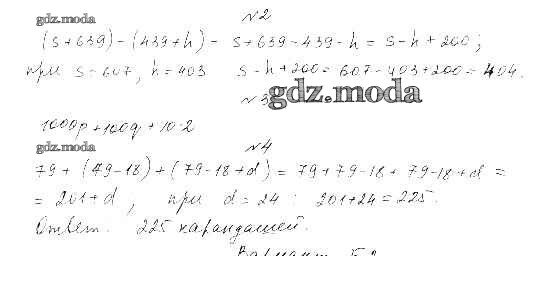 №2
gdz.moda
(s+639)-(439+h)- s+639-439-h = s-h+200;
при s-607, h=403 s-h+200=607-403+200=404.
№3
gdz.moda
1000p+100q+10·2
gdz.moda
№4
79+(79-18)+(79-18+d)=79+79-18+79-18+d=
=201+d, при d=24: 201+24=225.
Ответ. 225 карандашей.